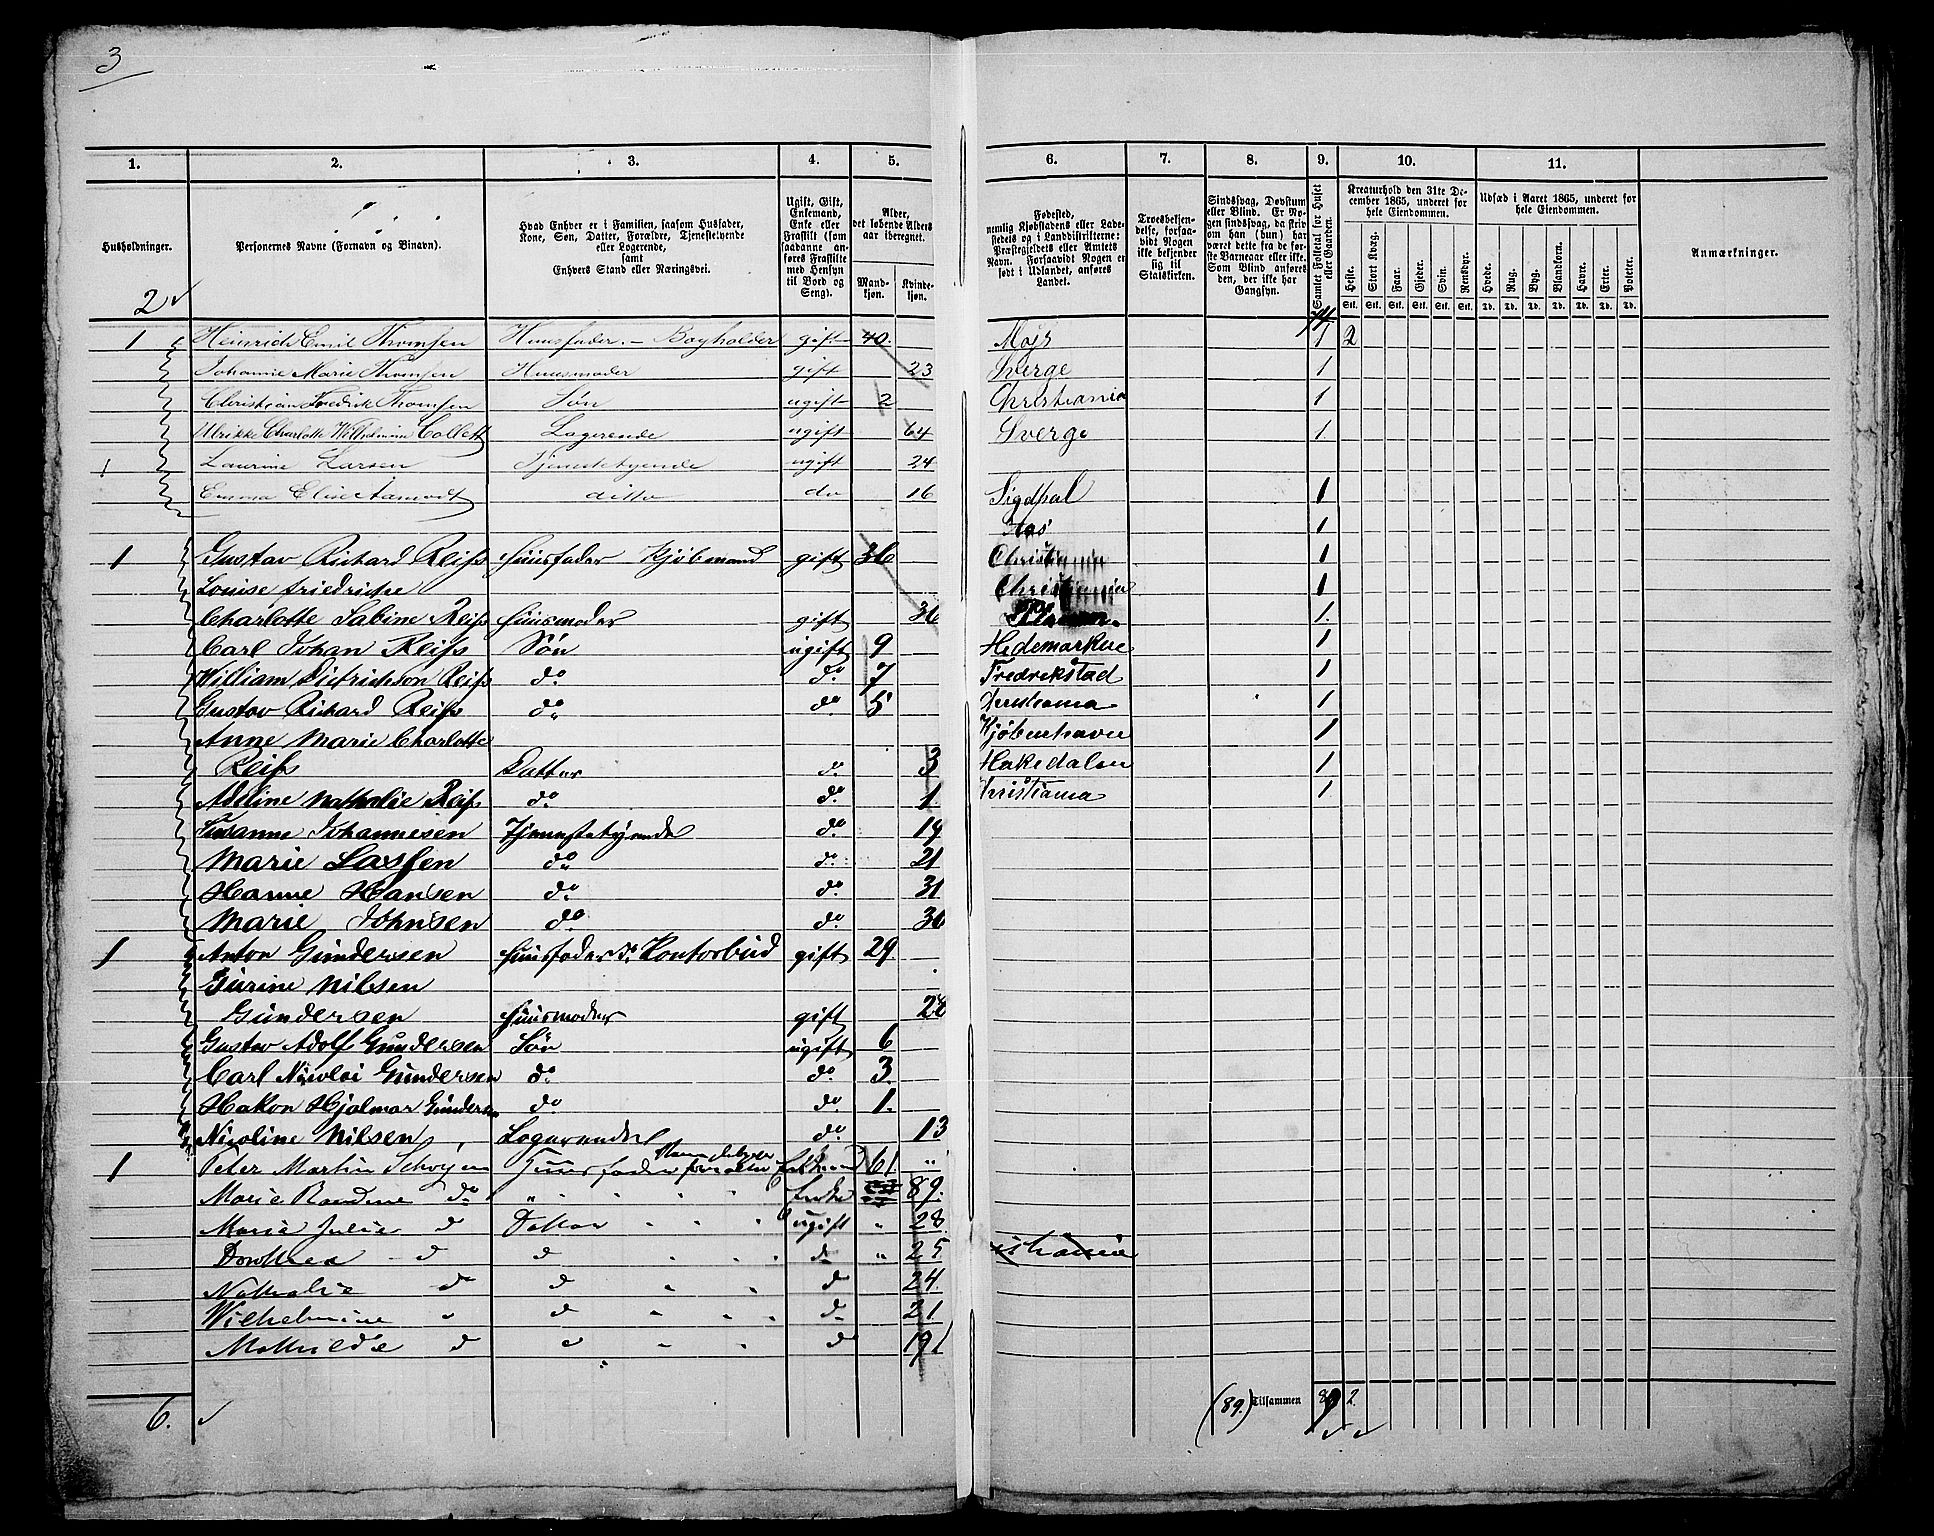 3
1. 2. 3. 4. 5. 6. 7. 8. 9. 10. 11.
Husholdninger.
Personernes Navne (Fornavn og Binavn).
Hvad Enhver er i Familien, saasom Husfader,
Kone, Søn, Datter, Forældre, Tjenestetyende
eller Logerende,
samt
Enhvers Stand eller Næringsvei.
Ugift, Gift,
Enkemand,
Enke eller
Fraskilt (som
saadanne an-
føres Fraskilte
med Hensyn
til Bord og
Seng).
Alder,
det løbende Alders-
aar iberegnet.
Mand-
kjøn.
Kvinde-
kjøn.
Fødested,
nemlig Kjøbstadens eller Lade-
stedets og i Landdistrikterne:
Præstegjeldets eller Amtets
Navn. Forsaavidt Nogen er
født i Udlandet, anføres
Landet.
Troesbekjen-
delse, forsaa-
vidt Nogen
ikke bekjender
sig til
Statskirken.
Sindssvag, Døvstum
eller Blind. Er No-
gen sindssvag, da skriv
om han (hun) har
været dette fra de før-
ste Barneaar eller ikke.
Som Blind anføres
den, der ikke har
Gangsyn.
Samlet Folketal for Huset
eller Gaarden.
Kreaturhold den 31te De-
cember 1865, underet for
hele Eiendommen.
Heste. Stort Kvæg. Faar. Gjeder. Svin. Rensdyr.
Stk. Stk. Stk. Stk. Stk. Stk.
Udsæd i Aaret 1865, underet for
hele Eiendommen.
Hvede. Rug. Byg. Blandkorn. Havre. Erter. Poteter.
Td. Td. Td. Td. Td. Td. Td.
Anmærkninger.
2
1 Heinrich Emil Thomsen Huusfader. - Bogholder gift 40. 1 2
Johanne Marie Thomsen Huusmoder gift 23 Sverge 1
Christian Fredrik Thomsen Søn ugift 2 Christiania 1
Ulrikke Charlotte Wilhelmine Collett Logerende ugift 64 Sverge 1
1 Laurine Larsen Tjenestetyende ugift 24
Emma Eline Aamodt ditto do 16 Sigdhal 1
Aas 1
1 Gustav Richard Reiss Huusfader Kjøbmand gift 36 Christiania 1
Louise Friedriche Christiania 1
Charlotte Sabine Reiss Huusmoder gift 36 1
Carl Johan Reiss Søn ugift 9 Hedemarken 1
William Dietrichson Reiss do. do. 7 Fredrekstad 1
Gustav Richard Reiss do. do. 5 Christiania 1
Anne Marie Charlotte Kjøbenhaven 1
Reiss Datter do. 3 Hakedalen 1
Adeline Nathalie Reiss do. do. 1. Christiania 1
Susanne Johannesen Tjenestetyende do. 19
Marie Larsen do. do. 21
Hanne Hansen do. do. 31
Marie Johnsen do. do. 30
1 Anton Gundersen Huusfader Kontorbud gift 29
Jurine Nilsen
Gundersen Huusmoder gift 28
Gustav Adolf Gundersen Søn ugift 6
Carl Nicolai Gundersen do. do. 3.
Hakon Hjalmar Gundersen do. do. 1.
Nicoline Nilsen, Logerende do. 13
1 Peter Martin Schøyen Huusfader Enkemand 61 "
Marie Randine do " Enke 89.
Marie Julie d Datter ugift " 28.
Dorothea d d d " 25
Nathalie d d d 24.
Wilhelmine " d d 21
Mathilde d " d 19
6.
(89.) Tilsammen 89 2.